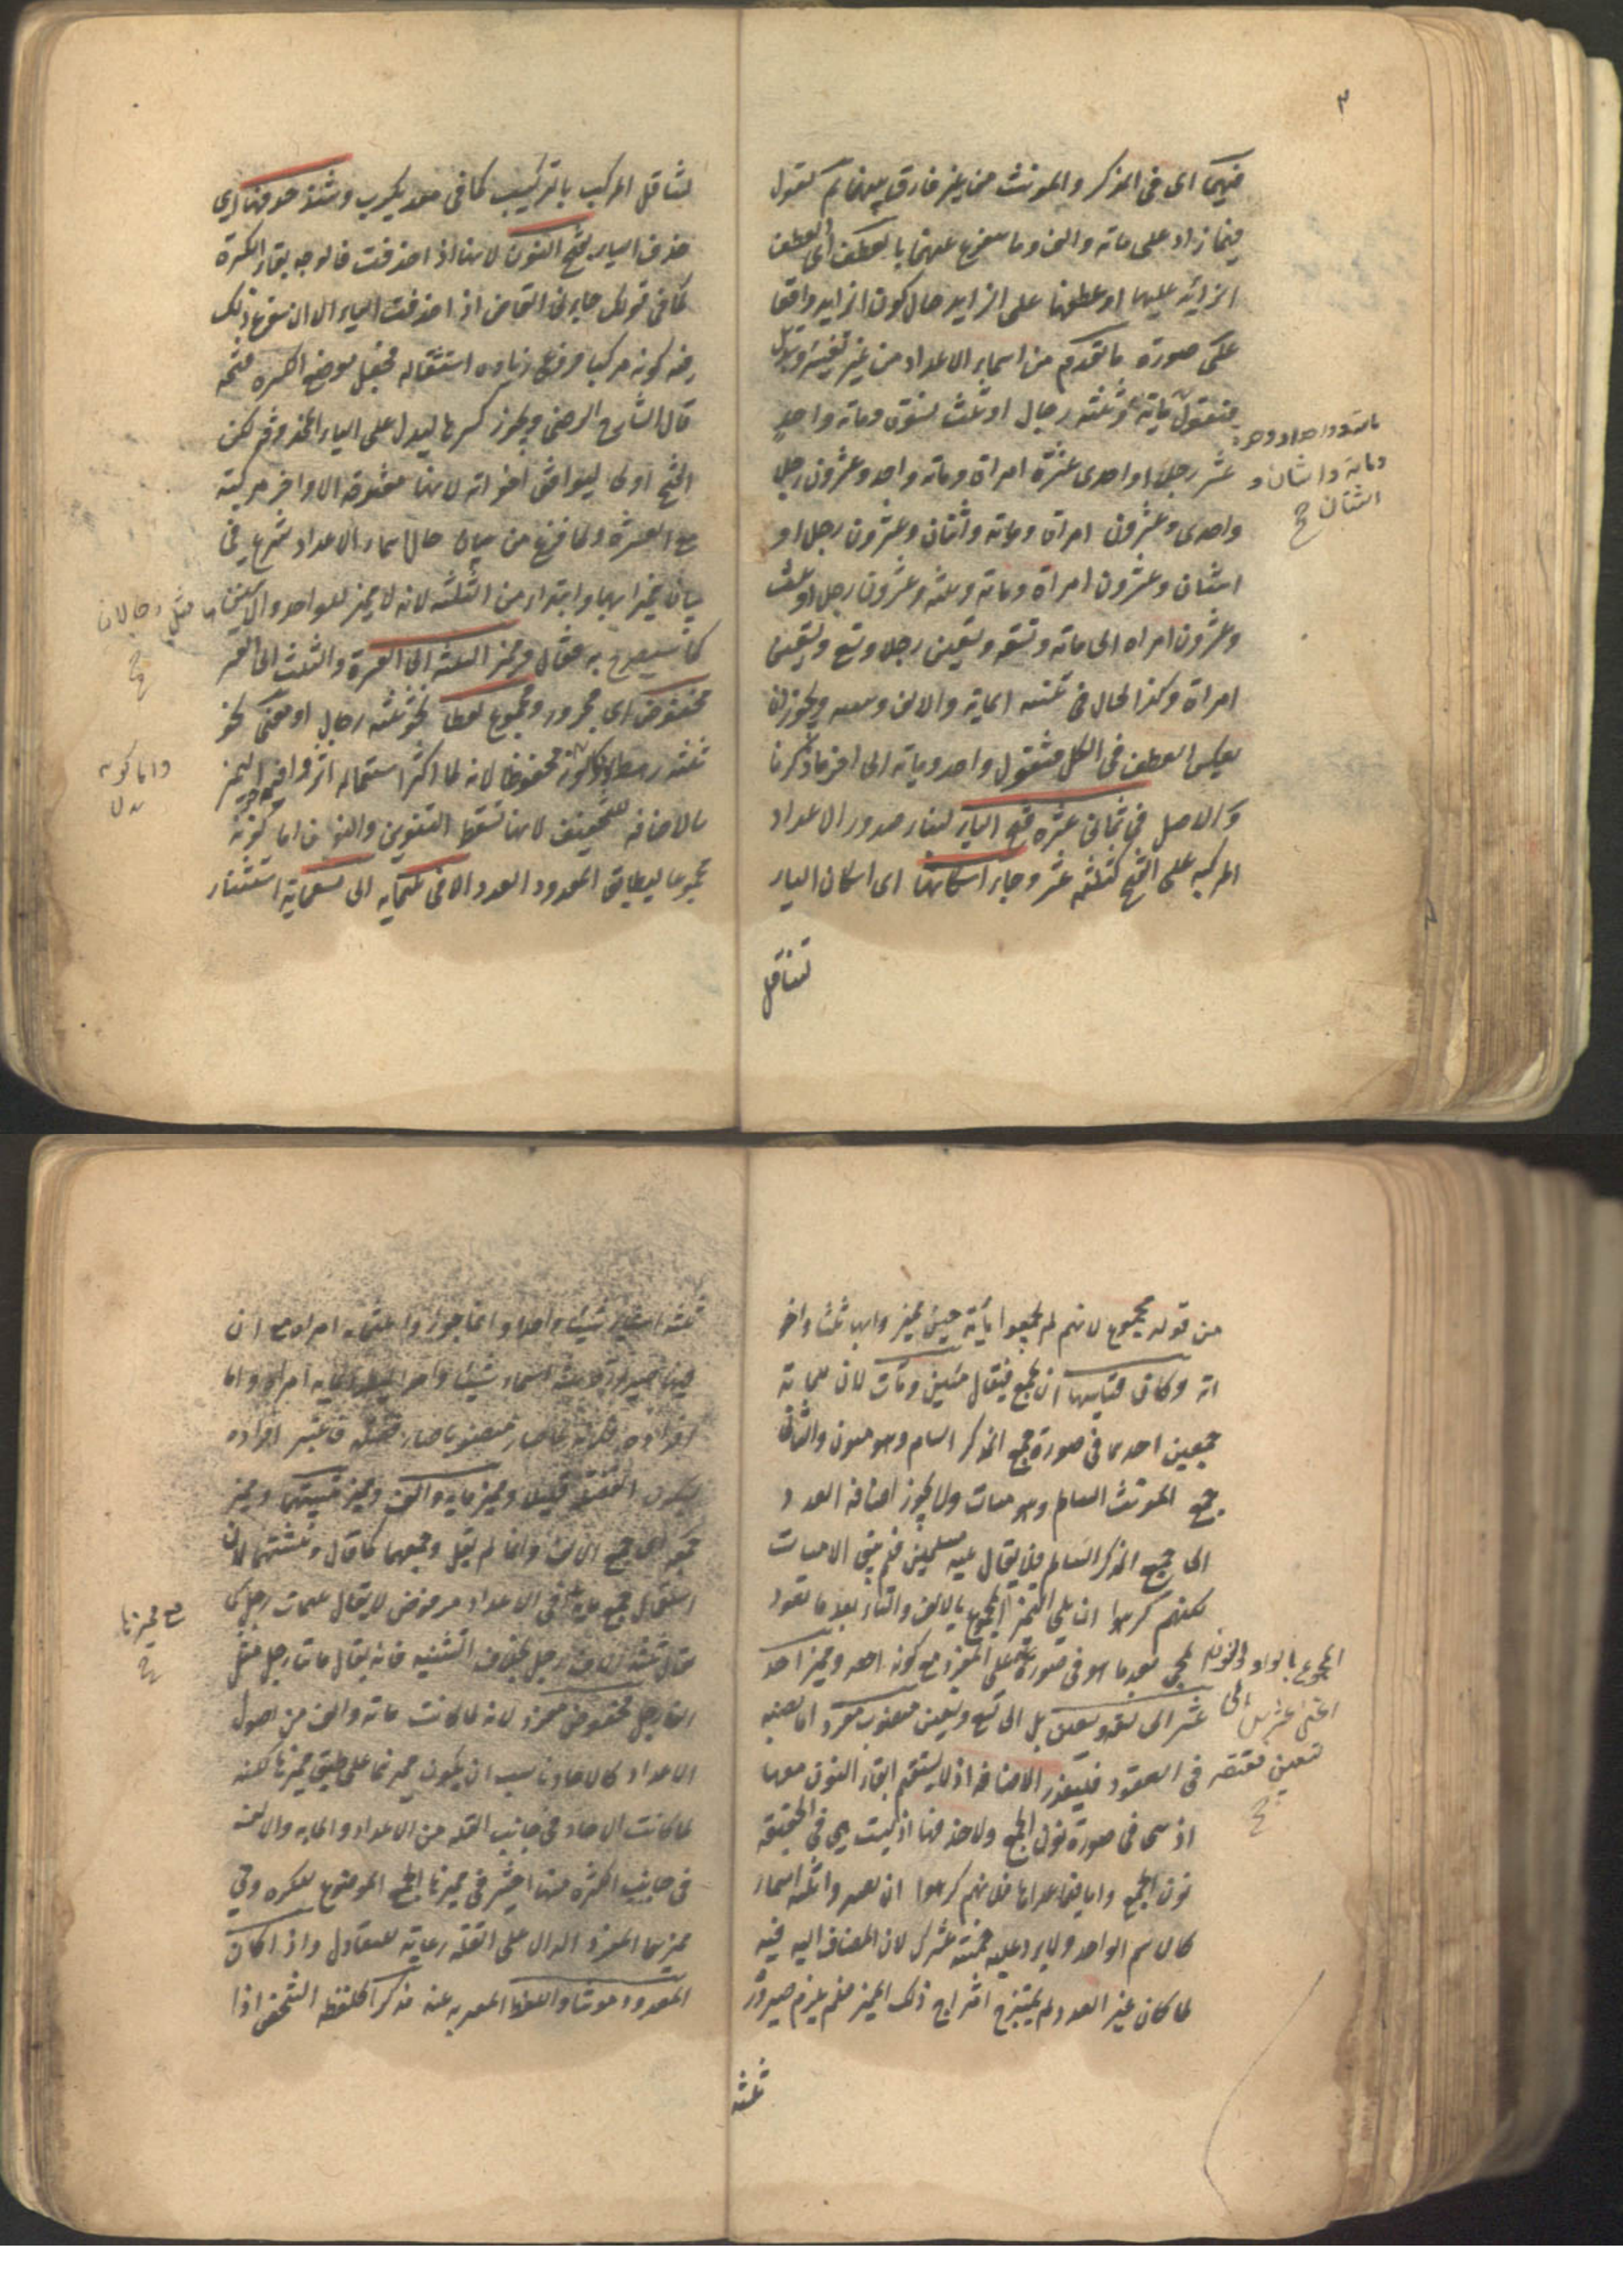 ٣
فيهما اى فى المذكر والمونث من غير فارق بينهما ثم تقول
فيما زاد على مائة والف وما يتفرع عنهما بالعطف اى بعطف
الزائد عليها او عطفها على الزايد حال كون الزايد واقعا
على صورة ما تقدم من اسماء الاعداد من غير تغيير وتبديل
فتقول مائة وثلثة رجال او ثلث نسوة ومائة واحد
عشر رجلا او احدى عشرة امراة ومائة واحد وعشرون رجلا
مائة وواحد او واحدة
ومائة واثنان و
اثنتان
واحدى وعشرون امراة ومائة واثنان وعشرون رجلا او
اثنتان وعشرون امراة ومائة وثلثة وعشرون رجلا او ثلث
وعشرون امراه الى مائة وتسعة وتسعين رجلا وتسع وتسعين
امراة وكذا الحال فى تثنية المائة والالف وجمعه ويجوز ان
يعكس العطف فى الكل فتقول واحد ومائة الى اخر ما ذكرنا
والاصل فى ثمانى عشره فتح الياء لبناء صدور الاعداد
المركبه على الفتح كثلثة عشر وجاء اسكانها اى اسكان الياء
لتثاقل
لتثاقل المركب بالتركيب كما فى معد يكرب وشذ حذفها اى
حذف الياء بفتح النون لانها اذا حذفت فالوجه بقاء الكسرة
كما فى قولك جاءنى القاض اذا حذفت الياء الا ان سوغ ذلك
فيه كونه مركبا فروعى زيادة استثقاله فجعل موضع الكسرة فتحة
قال الشارح الرضى ويجوز كسرها ليدل على الياء المحذوفة لكن
الفتح اولى ليوافق اخواته لانها مفتوحة الاواخر مركبة
مع العشرة ولما فرغ من بيان حال اسماء الاعداد شرع فى
بيان مميزاتها وابتدا من الثلثة لانه لا مميز للواحد والاثنين
كما سيصرح به فقال ومميز الثلثة الى العشرة والثلث الى العشر
مخفوض اى مجرور ومجموع لفظا نحو ثلثة رجال او معنى نحو
ثلثة رهط اما كونه مخفوضا لانه لما كثر استعماله اثروا فيه جر التمييز
واما كونه
بالاضافه للتخفيف لانها تسقط التنوين والنون اما كونه
مجموعا ليطابق المعدود العدد الا فى ثلثماية الى تسعماية استثناء
من قوله مجموع لانهم لم يجمعوا مائة حين ميز وابها ثلثا واخو
اته وكان قياسها ان يجمع فيقال مئين ومئات لان للمائة
جمعين احدهما فى صورة جمع المذكر السالم وهو مئون والثانى
جمع المونث السالم وهو مئات ولا يجوز اضافة العدد
الى جمع المذكر السالم فلا يقال ثلثة مسلمين فلم يبق الا مئات
لكنهم كرهوا ان يلى التمييز المجموع بالالف والتاء بعد ما تعود
المجئ بعد ما هو فى صورة المجموع بالواو والنون
عشر الى تسعة وتسعين بل الى تسع وتسعين منصوب مفرد اما نصبه
فى العقود فلتعذر الاضافه اذ لا يستقيم ابقاء النون معها
اذ هى فى صورة نون الجمع ولا حذفها اذ ليست هى فى الحقيقة
نون الجمع واما فيما عداها فلانهم كرهوا ان يصيروا ثلثة اسماء
كالاسم الواحد ولا يرد عليه خمسة عشرك لان المضاف اليه فيه
لما كان غير العدد لم يمتزج امتزاج ذلك المميز فلم يلزم صيرورة
ثلثة
ثلثة اسماء شيئا واحدا وانما جوزوا ثلثماية امراة مع ان
فيها صيرورة ثلثة اسماء شيئا واحدا
افراده فلانه لما صار منصوبا صار فضلة فاعتبر افراده
ليكون الفضلة قليلة ومميز مائة والف ومميز تثنيتهما ومميز
جمعه اى جمع الالف وانما لم يقل وجمعهما كما قال وتثنيتهما لان
استعمال جمع مائة فى الاعداد مرفوض لا يقال ثلث مئات رجل كما
مع مميزها
يقال ثلثة الاف رجل بخلاف التثنيه فانه يقال مائتا رجل مثل
الفا رجل مخفوض مفرد لانه لما كانت مائة والف من اصول
الاعداد كالاحاد ناسب ان يكون مميزهما على طبق مميزها لكنه
لما كانت الاحاد فى جانب القلة من الاعداد والمائة والالف
فى جانب الكثرة منها اختير فى مميزها الجمع الموضوع للكثرة وفى
مميزهما المفرد الدال على القلة رعاية للتعادل واذا كان
المعدود مونثا واللفظ المعبر به عنه مذكرا كلفظة الشخص اذا